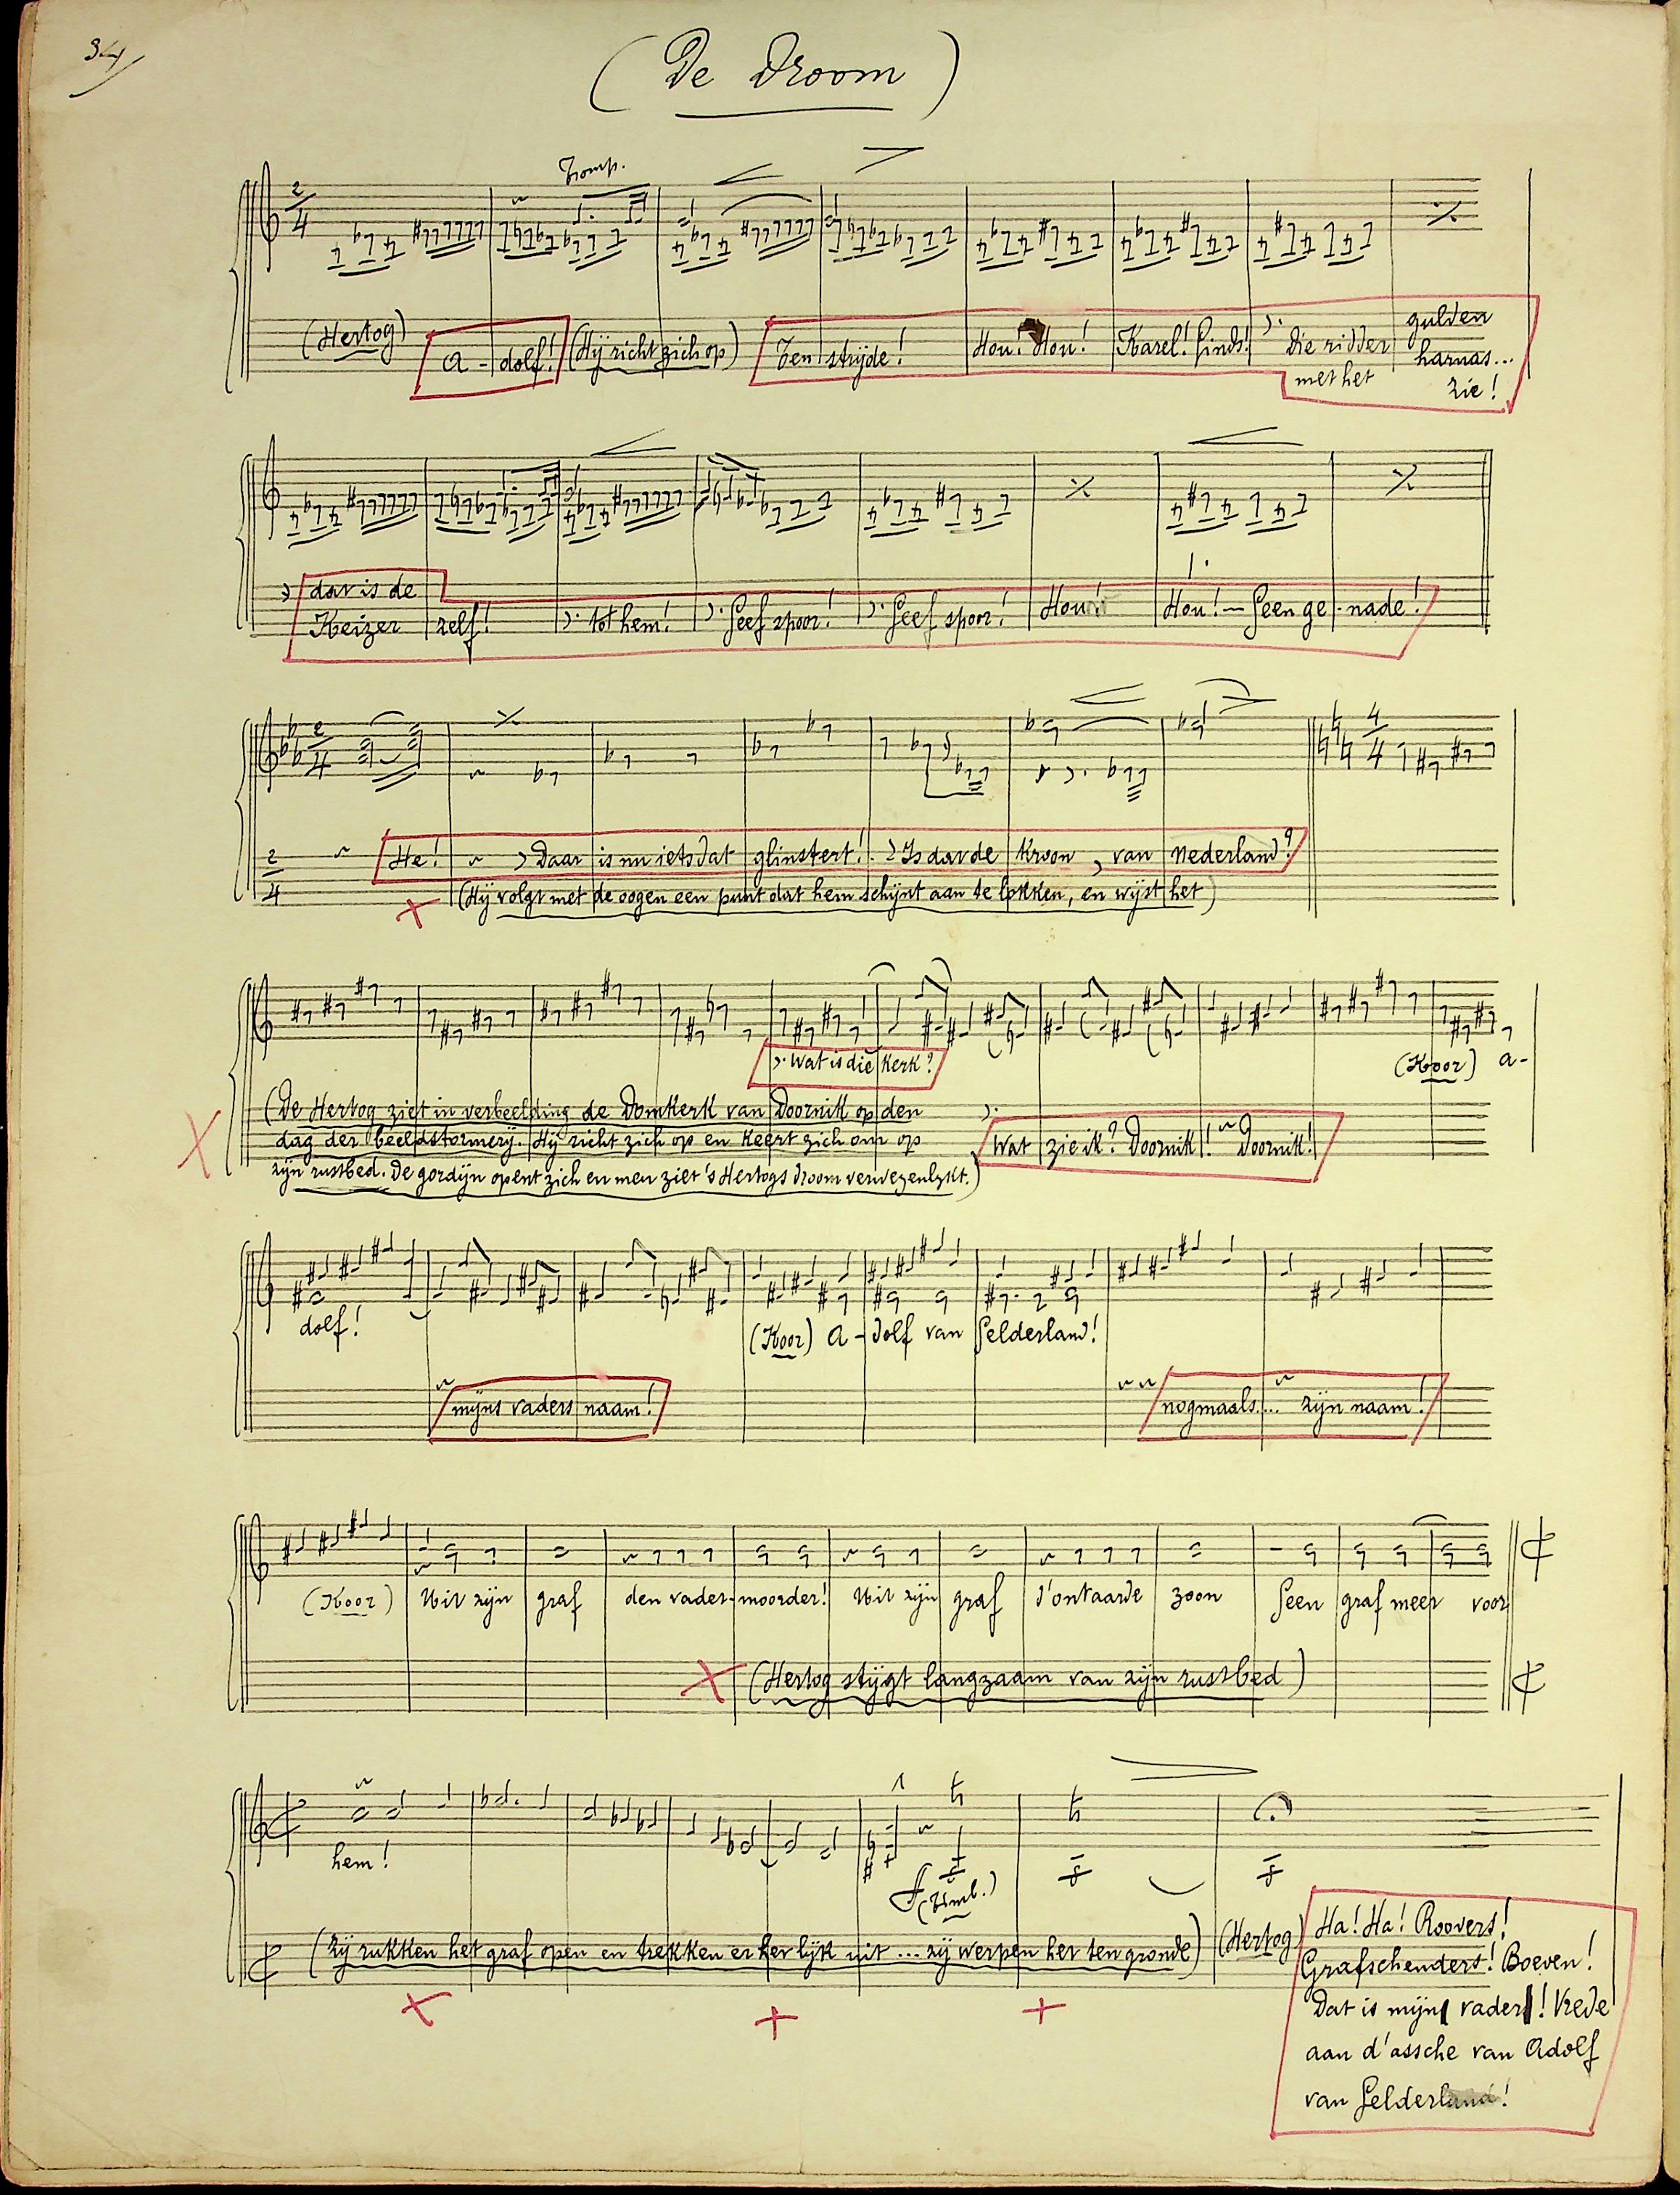 34
(De Droom)
Tromp.
2/4
(Hertog) A - dolf! (Hij richt zich op) Ten strijde! Hou! Hou! Karel! Ginds! Die ridder gulden
met het harnas...
zie!
dat is de
Keizer zelf! tot hem! Geef spoor! Geef spoor! Hou! Hou! — Geen ge - nade!
2/4 4/4
2/4 He! Daar is nu iets dat glinstert! Is dat de Kroon, van Nederland?
(Hij volgt met de oogen een punt dat hem schijnt aan te lokken, en wijst het)
Wat is die Kerk?
(Koor) A-
(De Hertog ziet in verbeelding de Domkerk van Doornik op den
dag der beeldstormerij. Hij richt zich op en keert zich om op
zijn rustbed. De gordijn opent zich en men ziet 's Hertogs droom verwezenlykt.)
Wat zie ik? Doornik! Doornik!
dolf! (Koor) A - dolf van Gelderland!
mijns vaders naam! nogmaals.... zijn naam!
(Koor) Uit zijn graf den vader-moorder! Uit zijn graf d'ontaarde zoon Geen graf meer voor
(Hertog stijgt langzaam van zijn rustbed)
hem!
(Timb.)
(Zij rukken het graf open en trekken er het lijk uit ... zij werpen het ten gronde) (Hertog) Ha! Ha! Roovers!
Grafschenders! Boeven!
Dat is mijn vader! Vrede
aan d'assche van Adolf
van Gelderland!